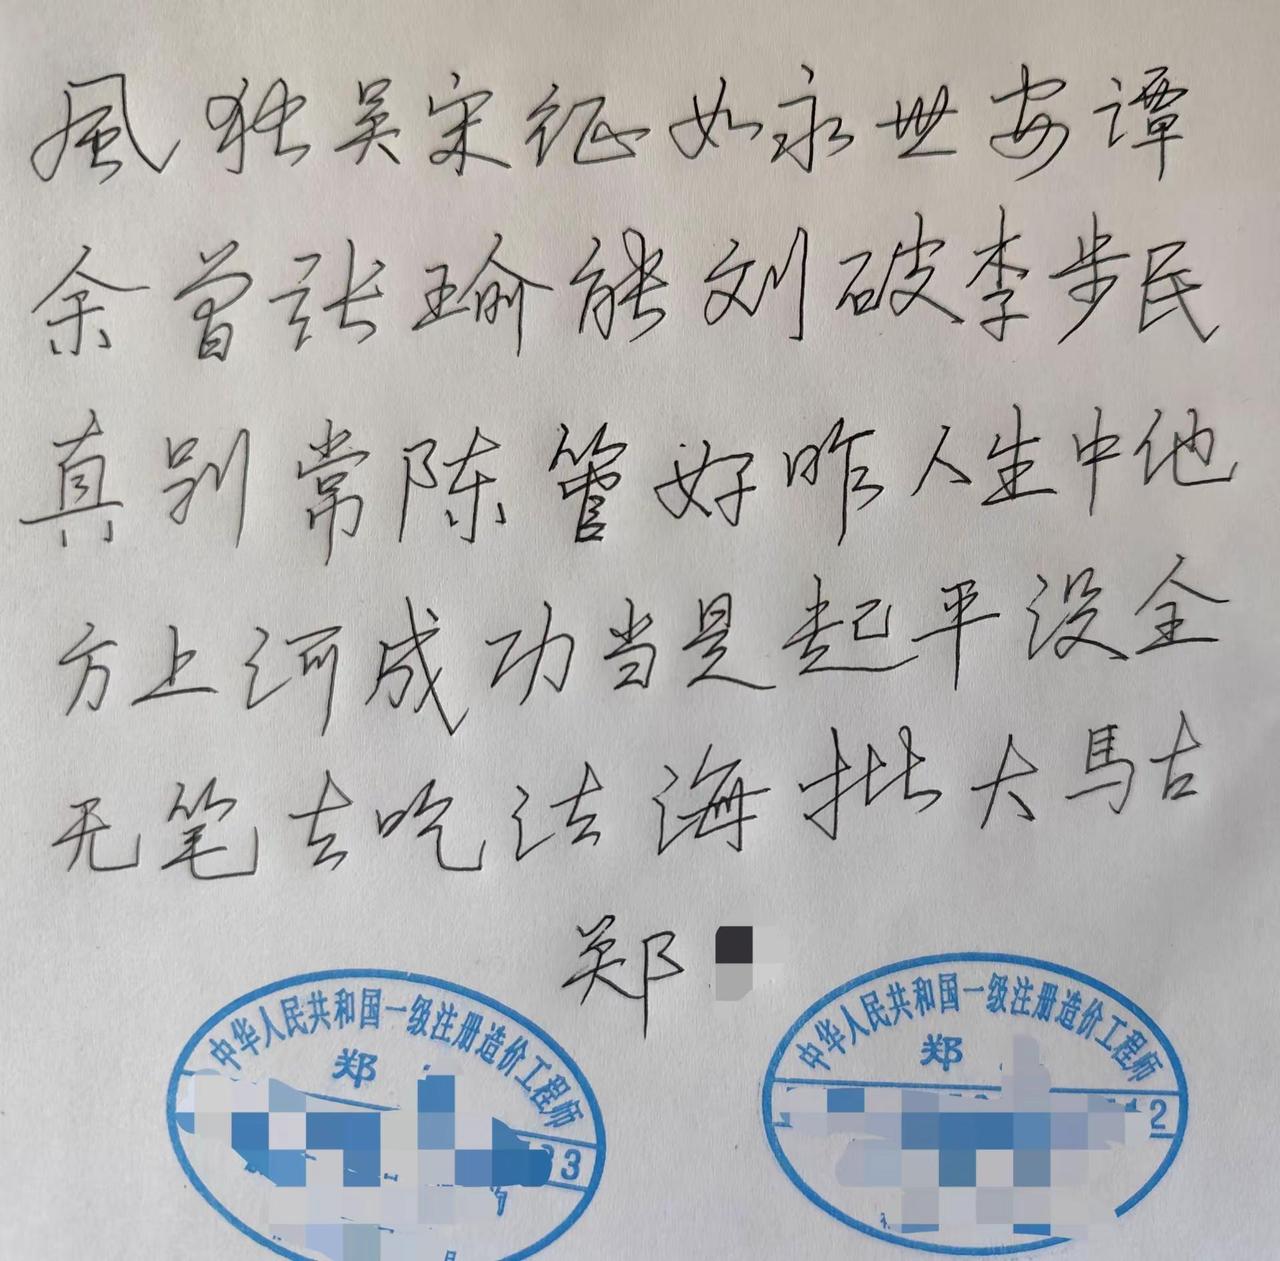 風独吴宋征如永世安谭
余曾张瑜能刘破李步民
真别常陈管好昨人生中他
方上河成功当是起平没全
无笔去吃法海批大馬古
郑
中华人民共和国一级注册造价工程师
郑
3
中华人民共和国一级注册造价工程师
郑
12